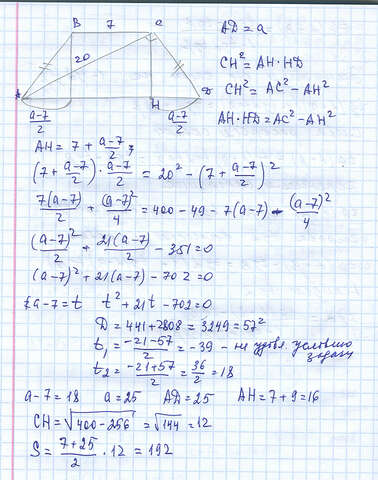 B 7 C
20
A H D
a-7/2 a-7/2
AD = a
CH² = AH · HD
CH² = AC² - AH²
AH · HD = AC² - AH²
AH = 7 + a-7/2,
(7 + a-7/2) · a-7/2 = 20² - (7 + a-7/2)²
7(a-7)/2 + (a-7)²/4 = 400 - 49 - 7(a-7) - (a-7)²/4
(a-7)²/2 + 21(a-7)/2 - 351 = 0
(a-7)² + 21(a-7) - 702 = 0
a-7 = t t² + 21t - 702 = 0
D = 441 + 2808 = 3249 = 57²
t₁ = -21-57/2 = -39 - не удовл. условию
задачи
t₂ = -21+57/2 = 36/2 = 18
a-7 = 18 a = 25 AD = 25 AH = 7+9 = 16
CH = √400-256 = √144 = 12
S = 7+25/2 · 12 = 192